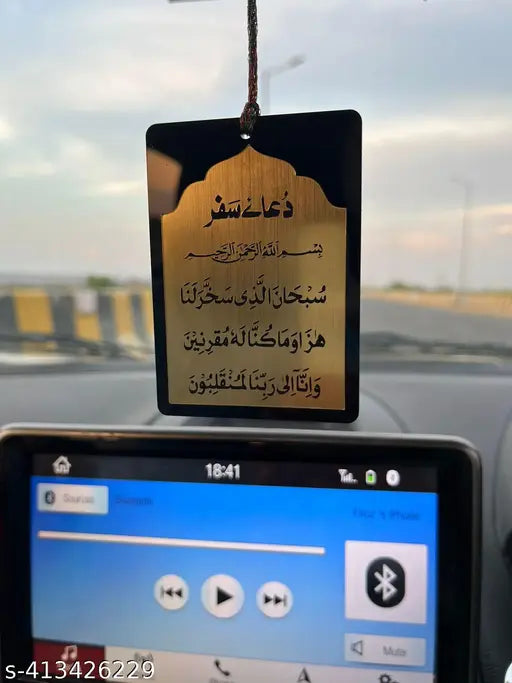 دُعائے سَفر
بِسْمِ اللهِ الرَّحْمٰنِ الرَّحِيمِ
سُبْحَانَ الَّذِي سَخَّرَلَنَا
هٰزَا وَمَا كُنَّا لَهٗ مُقْرِنِيْنَ
وَاِنَّآ اِلٰی رَبِّنَا لَمُنْقَلِبُوْنَ
18:41
Mute
s-413426229